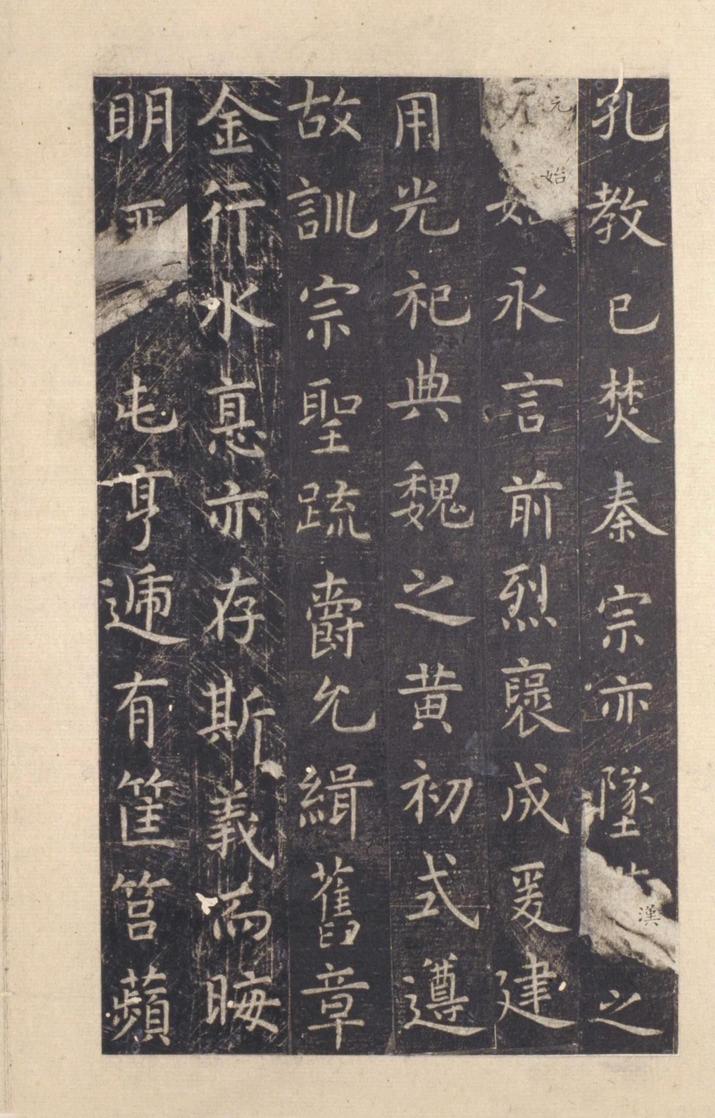 孔教已焚秦宗亦墜漢之
元始永言前烈褒成爰建
用光祀典魏之黄初式遵
故訓宗聖疏爵允緝舊章
金行水悳亦存斯義而晦
明屯亨遞有筐筥蘋